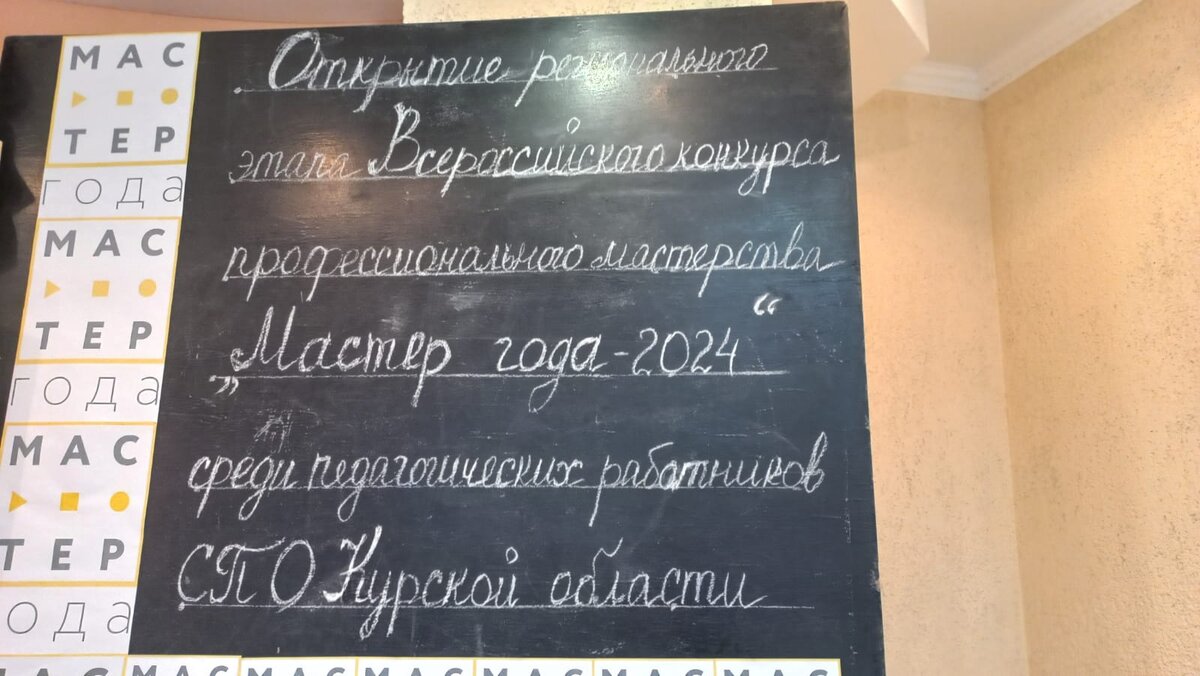 МАС
ТЕР
года
МАС
ТЕР
года
МАС
ТЕР
года
Открытие регионального
этапа Всероссийского конкурса
профессионального мастерства
„Мастер года-2024“
среди педагогических работников
СПО Курской области
МАС МАС МАС МАС МАС МАС МАС